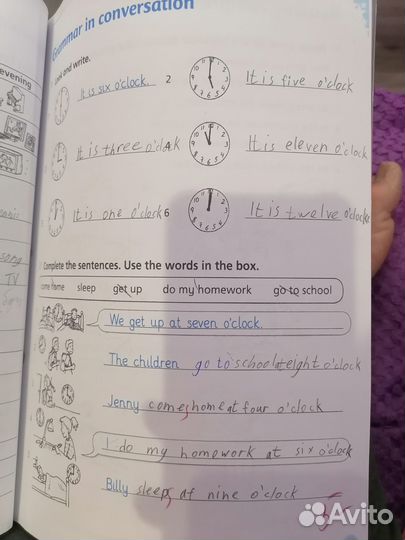 Grammar in conversation
evening
Look and write.
It is six o'clock.
2 It is five o'clock
It is three o'clock
4 It is eleven o'clock
It is one o'clock
6 It is twelve o'clock
song
TV
Complete the sentences. Use the words in the box.
come home sleep get up do my homework go to school
We get up at seven o'clock.
The children go to school at eight o'clock
Jenny comes home at four o'clock
I do my homework at six o'clock
Billy sleeps at nine o'clock
Avito